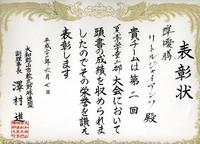 表彰状
準優勝
リトルジャイアンツ 殿
貴チームは第二回
大会において
頭書の成績を収められま
したのでその栄誉を讃え
表彰します
平成二十年六月七日
副理事長 澤村 進